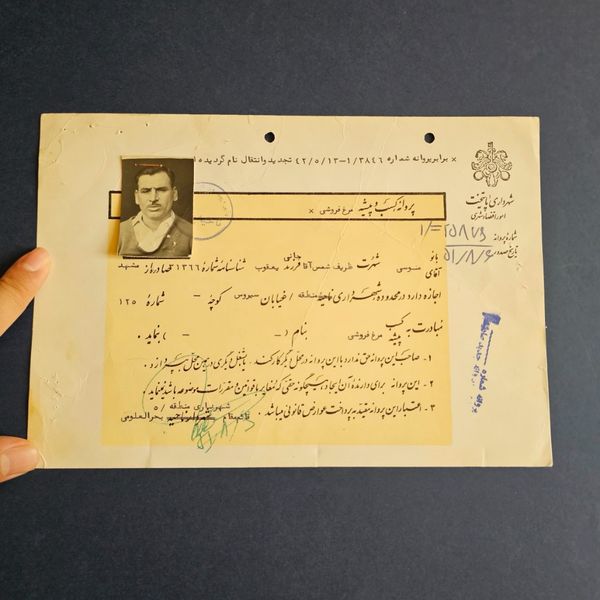 × برابر پروانه شماره ۱/۳۸۴۶-۴۲/۵/۱۳ تجدید و انتقال نام گردیده
شهرداری پایتخت
امور اقتصاد شهری
شماره پروانه
تاریخ صدور ۵۱/۸/۶
پروانه کسب و پیشه مرغ فروشی ×
بانو
آقای موسی شهرت ظریف شمس آقا جانی فرزند یعقوب شناسنامه شماره ۱۳۶۶ صادره از مشهد
اجازه دارد در محدوده شهرداری ناحیه منطقه / خیابان سیروس کوچه – شماره ۱۲۵
مبادرت به کسب پیشه مرغ فروشی بنام ( – – ) نماید .
۱- صاحب این پروانه حق ندارد با این پروانه در محل دیگر کار کند . یا شغل دیگری در همین محل بپردازد .
۲- این پروانه برای دارنده آن ایجاد هیچگونه حقی که مغایر با قوانین و مقررات موضوعه باشد نمینماید
۳- اعتبار این پروانه مقید به پرداخت عوارض قانونی میباشد .
شهرداری منطقه /۵
بحرالعلومی